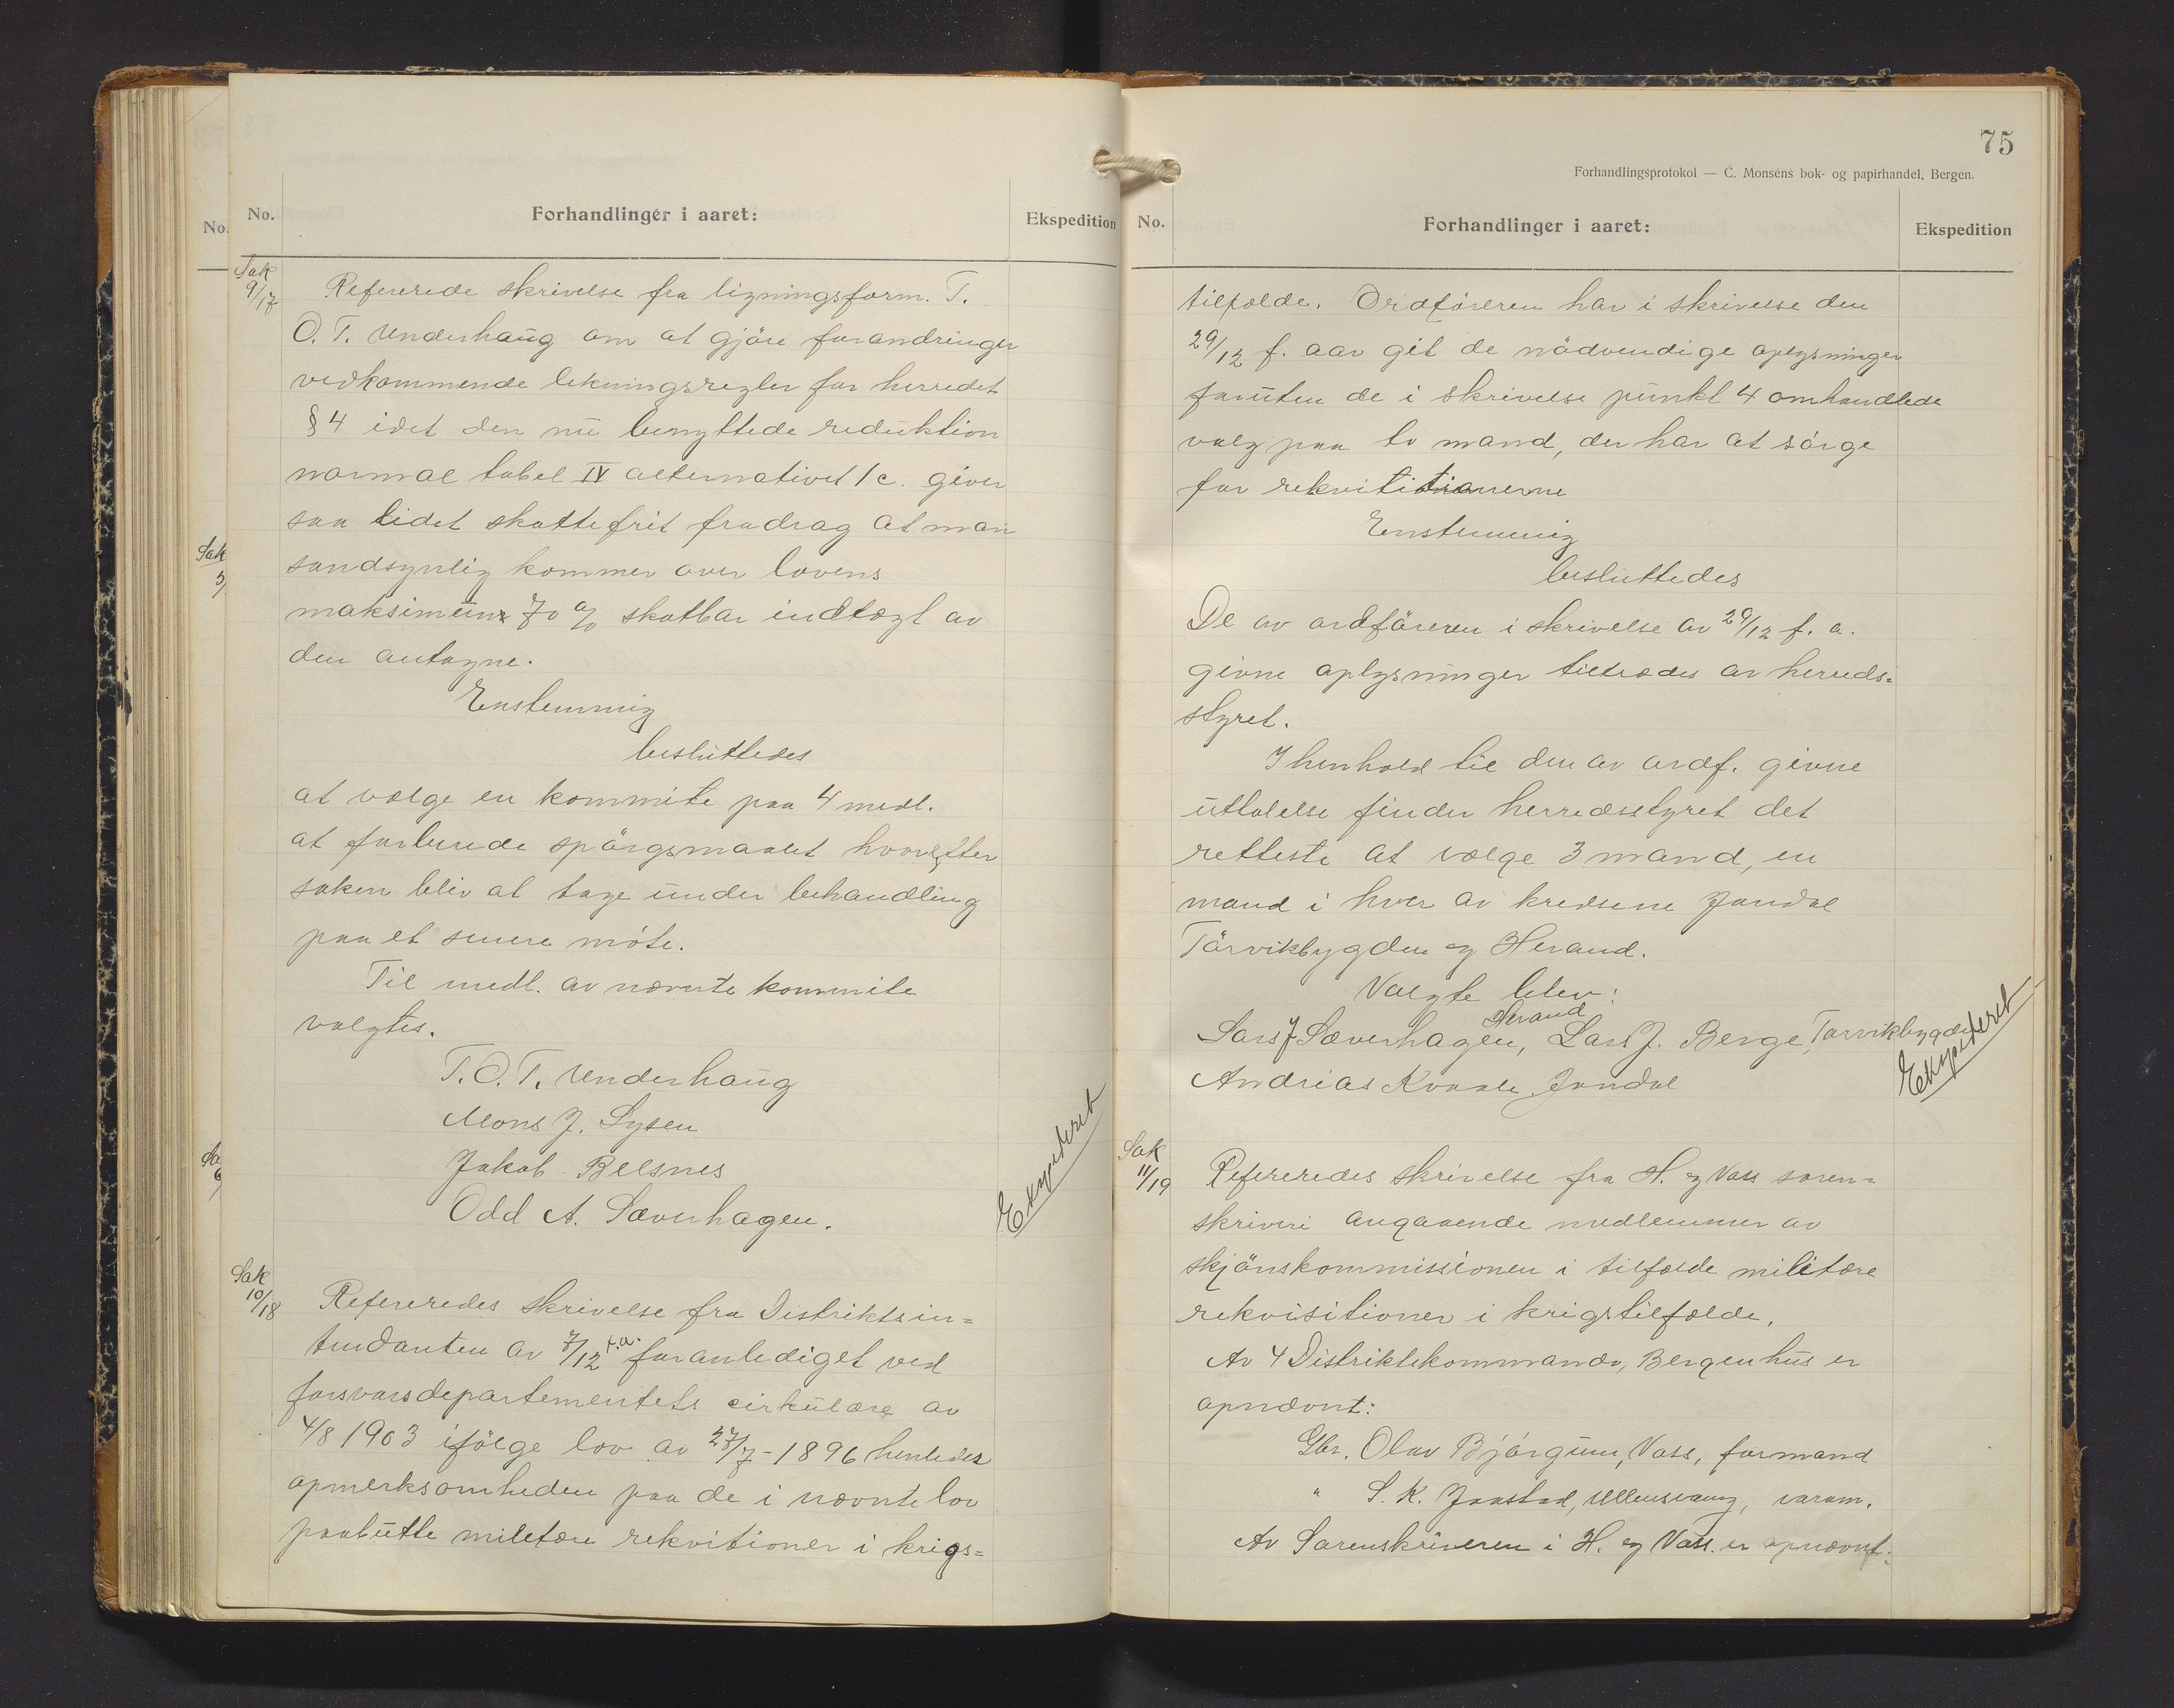 No.
Forhandlinger i aaret:
Ekspedition
Sak
9/17
Refererede skrivelse fra ligningsform. T.
O. T. Underhaug om at gjöre forandringer
vedkommende likningsregler for herredet
§ 4 idet den nu benyttede reduktion
normal tabel IV alternativet 1 c. giver
saa lidet skattefrit fradrag at man
sandsynlig kommer over lovens
maksimum 70 % skatbar indtægt av
den antagne.
Enstemmig
besluttedes
at vælge en kommite paa 4 medl.
at forberede spörgsmaalet hvorefter
saken bliv at tage under behandling
paa et senere möte.
Til medl. av nævnte kommite
valgtes.
T. O. T. Underhaug
Mons J. Lysen
Jakob Belsnes
Odd A. Sæverhagen.
Ekspederet
Sak
10/18
Refereredes skrivelse fra Distriktsin=
tendanten av 7/12 f.a. foranlediget ved
forsvarsdepartementets cirkulære av
4/8 1903 ifölge lov av 27/7 - 1896 henledes
opmerksomheden paa de i nævnte lov
paabutte miletære rekvitioner i krigs=
75
Forhandlingsprotokol — C. Monsens bok- og papirhandel, Bergen.
No.
Forhandlinger i aaret:
Ekspedition
tilfælde. Ordföreren har i skrivelse den
29/12 f. aar git de nödvendige oplysninger
foruten de i skrivelse punkt 4 omhandlede
valg paa to mand, der har at sörge
for rekvititionerne
Enstemmig
besluttedes
De av ordföreren i skrivelse av 29/12 f. a.
givne oplysninger tiltrædes av herreds=
styret.
I henhold til den av ordf. givne
uttalelse finder herredsstyret det
retteste at vælge 3 mand, en
mand i hver av kredsene Jondal
Törvikbygden og Herand.
Valgte blev:
Herand
Lars J Sæverhagen, Lars J. Berge, Torvikbygden
Andrias Kvaale Jondal
Ekspederet
Sak
11/19
Refereredes skrivelse fra H. og Voss soren=
skriveri angaaende medlemmer av
skjönskommissionen i tilfælde militære
rekvisitioner i krigstilfælde.
Av 4 Distriktskommando, Bergenhus er
opnævnt:
Gbr. Olav Bjórgum, Voss, formand
" S. K. Jaastad, Ullensvang, varam.
Av Sorenskriveren i H. og Voss. er opnævnt:
No.
Sak